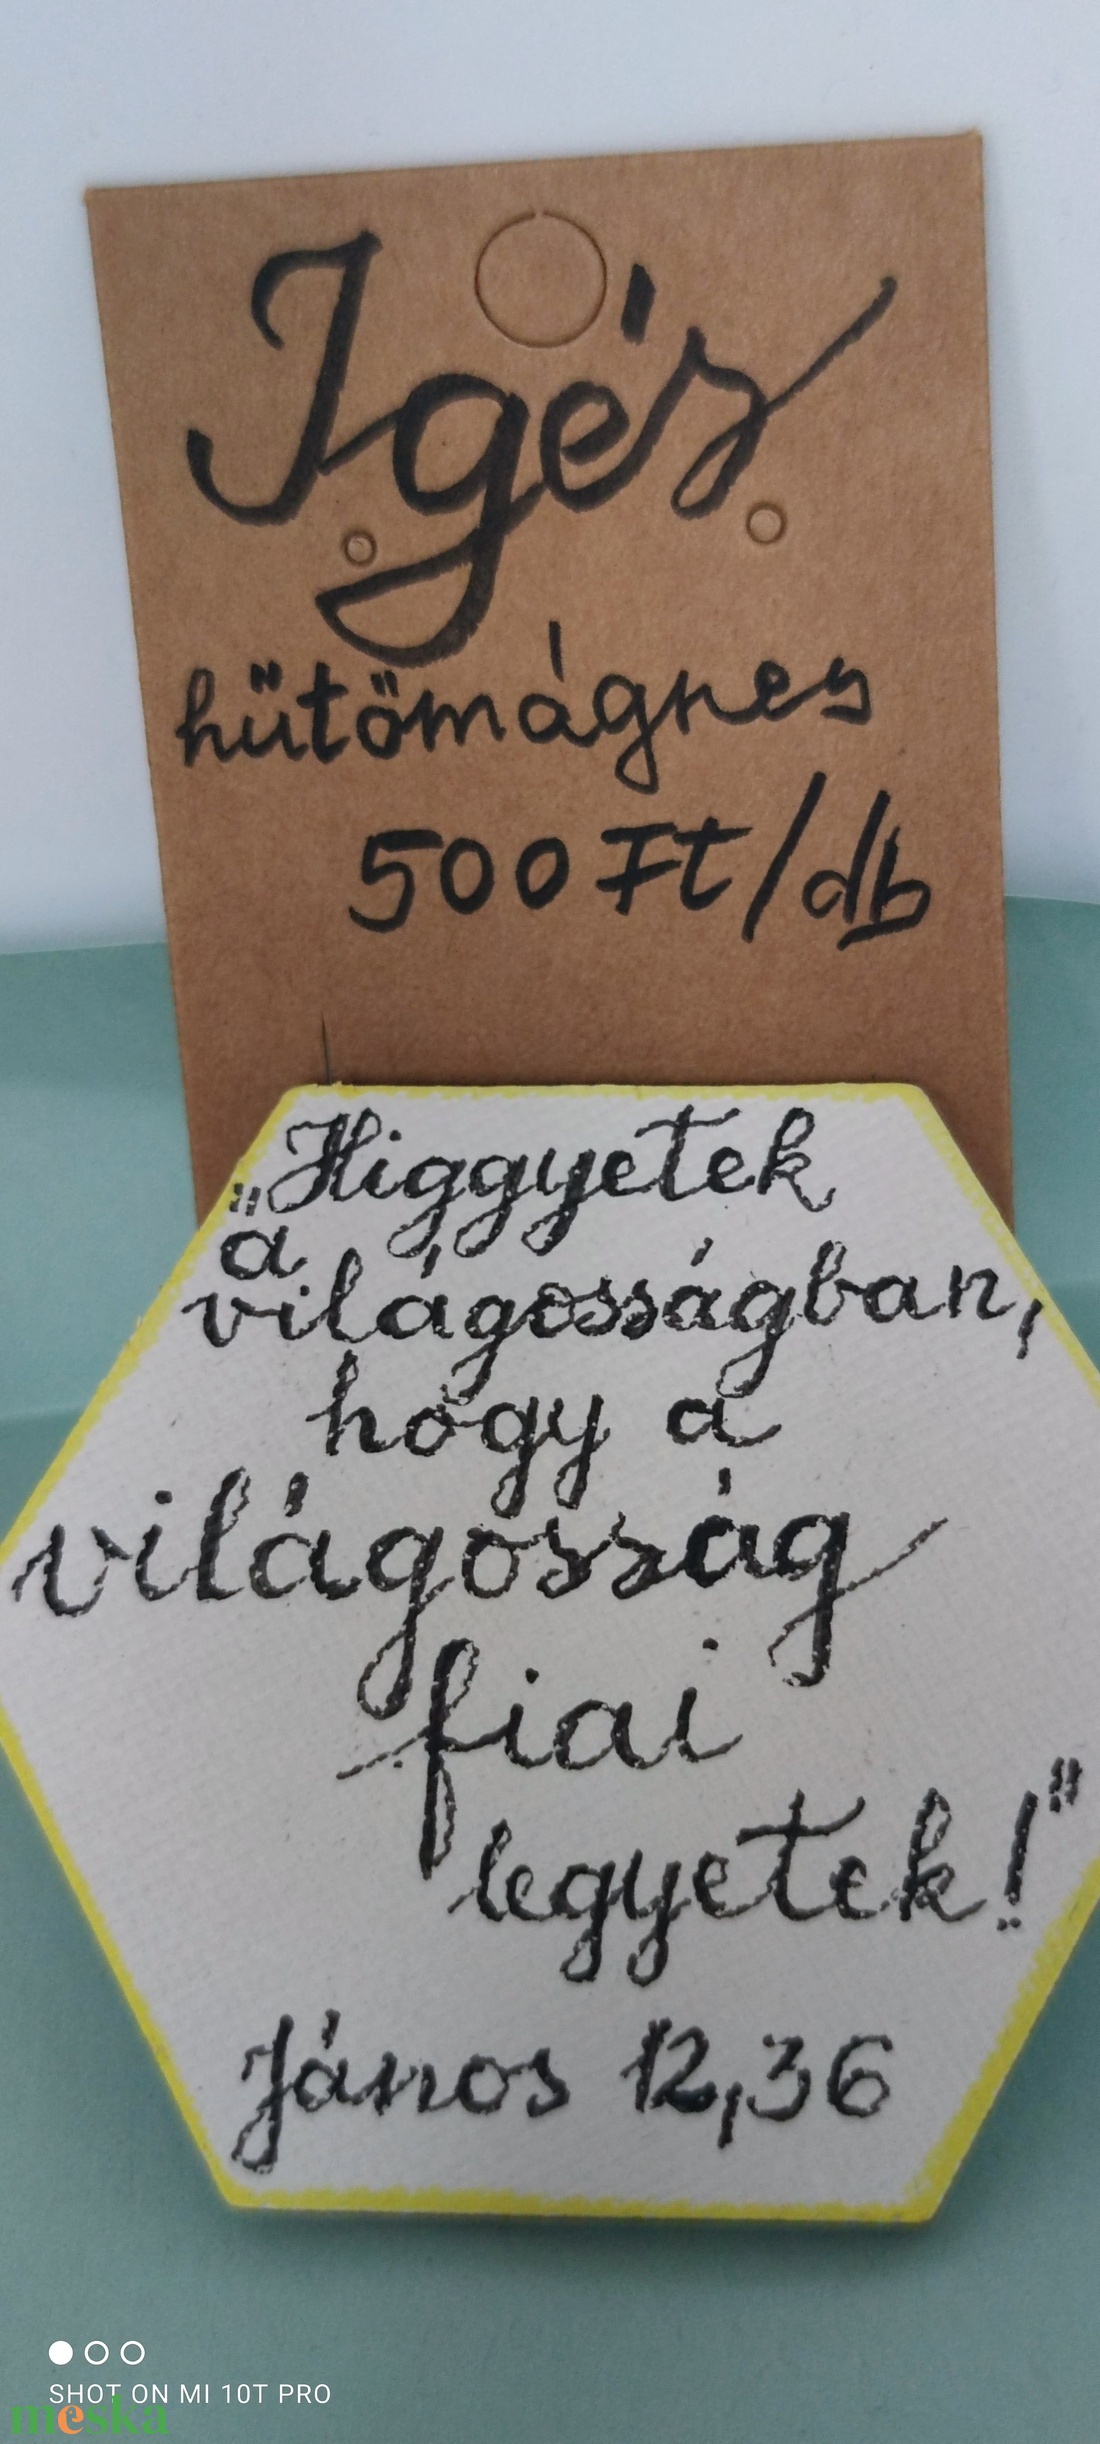 Igés
hűtőmágnes
500 Ft/db
„Higgyetek
a
világosságban,
hogy a
világosság
fiai
legyetek!"
János 12,36
SHOT ON MI 10T PRO
meska